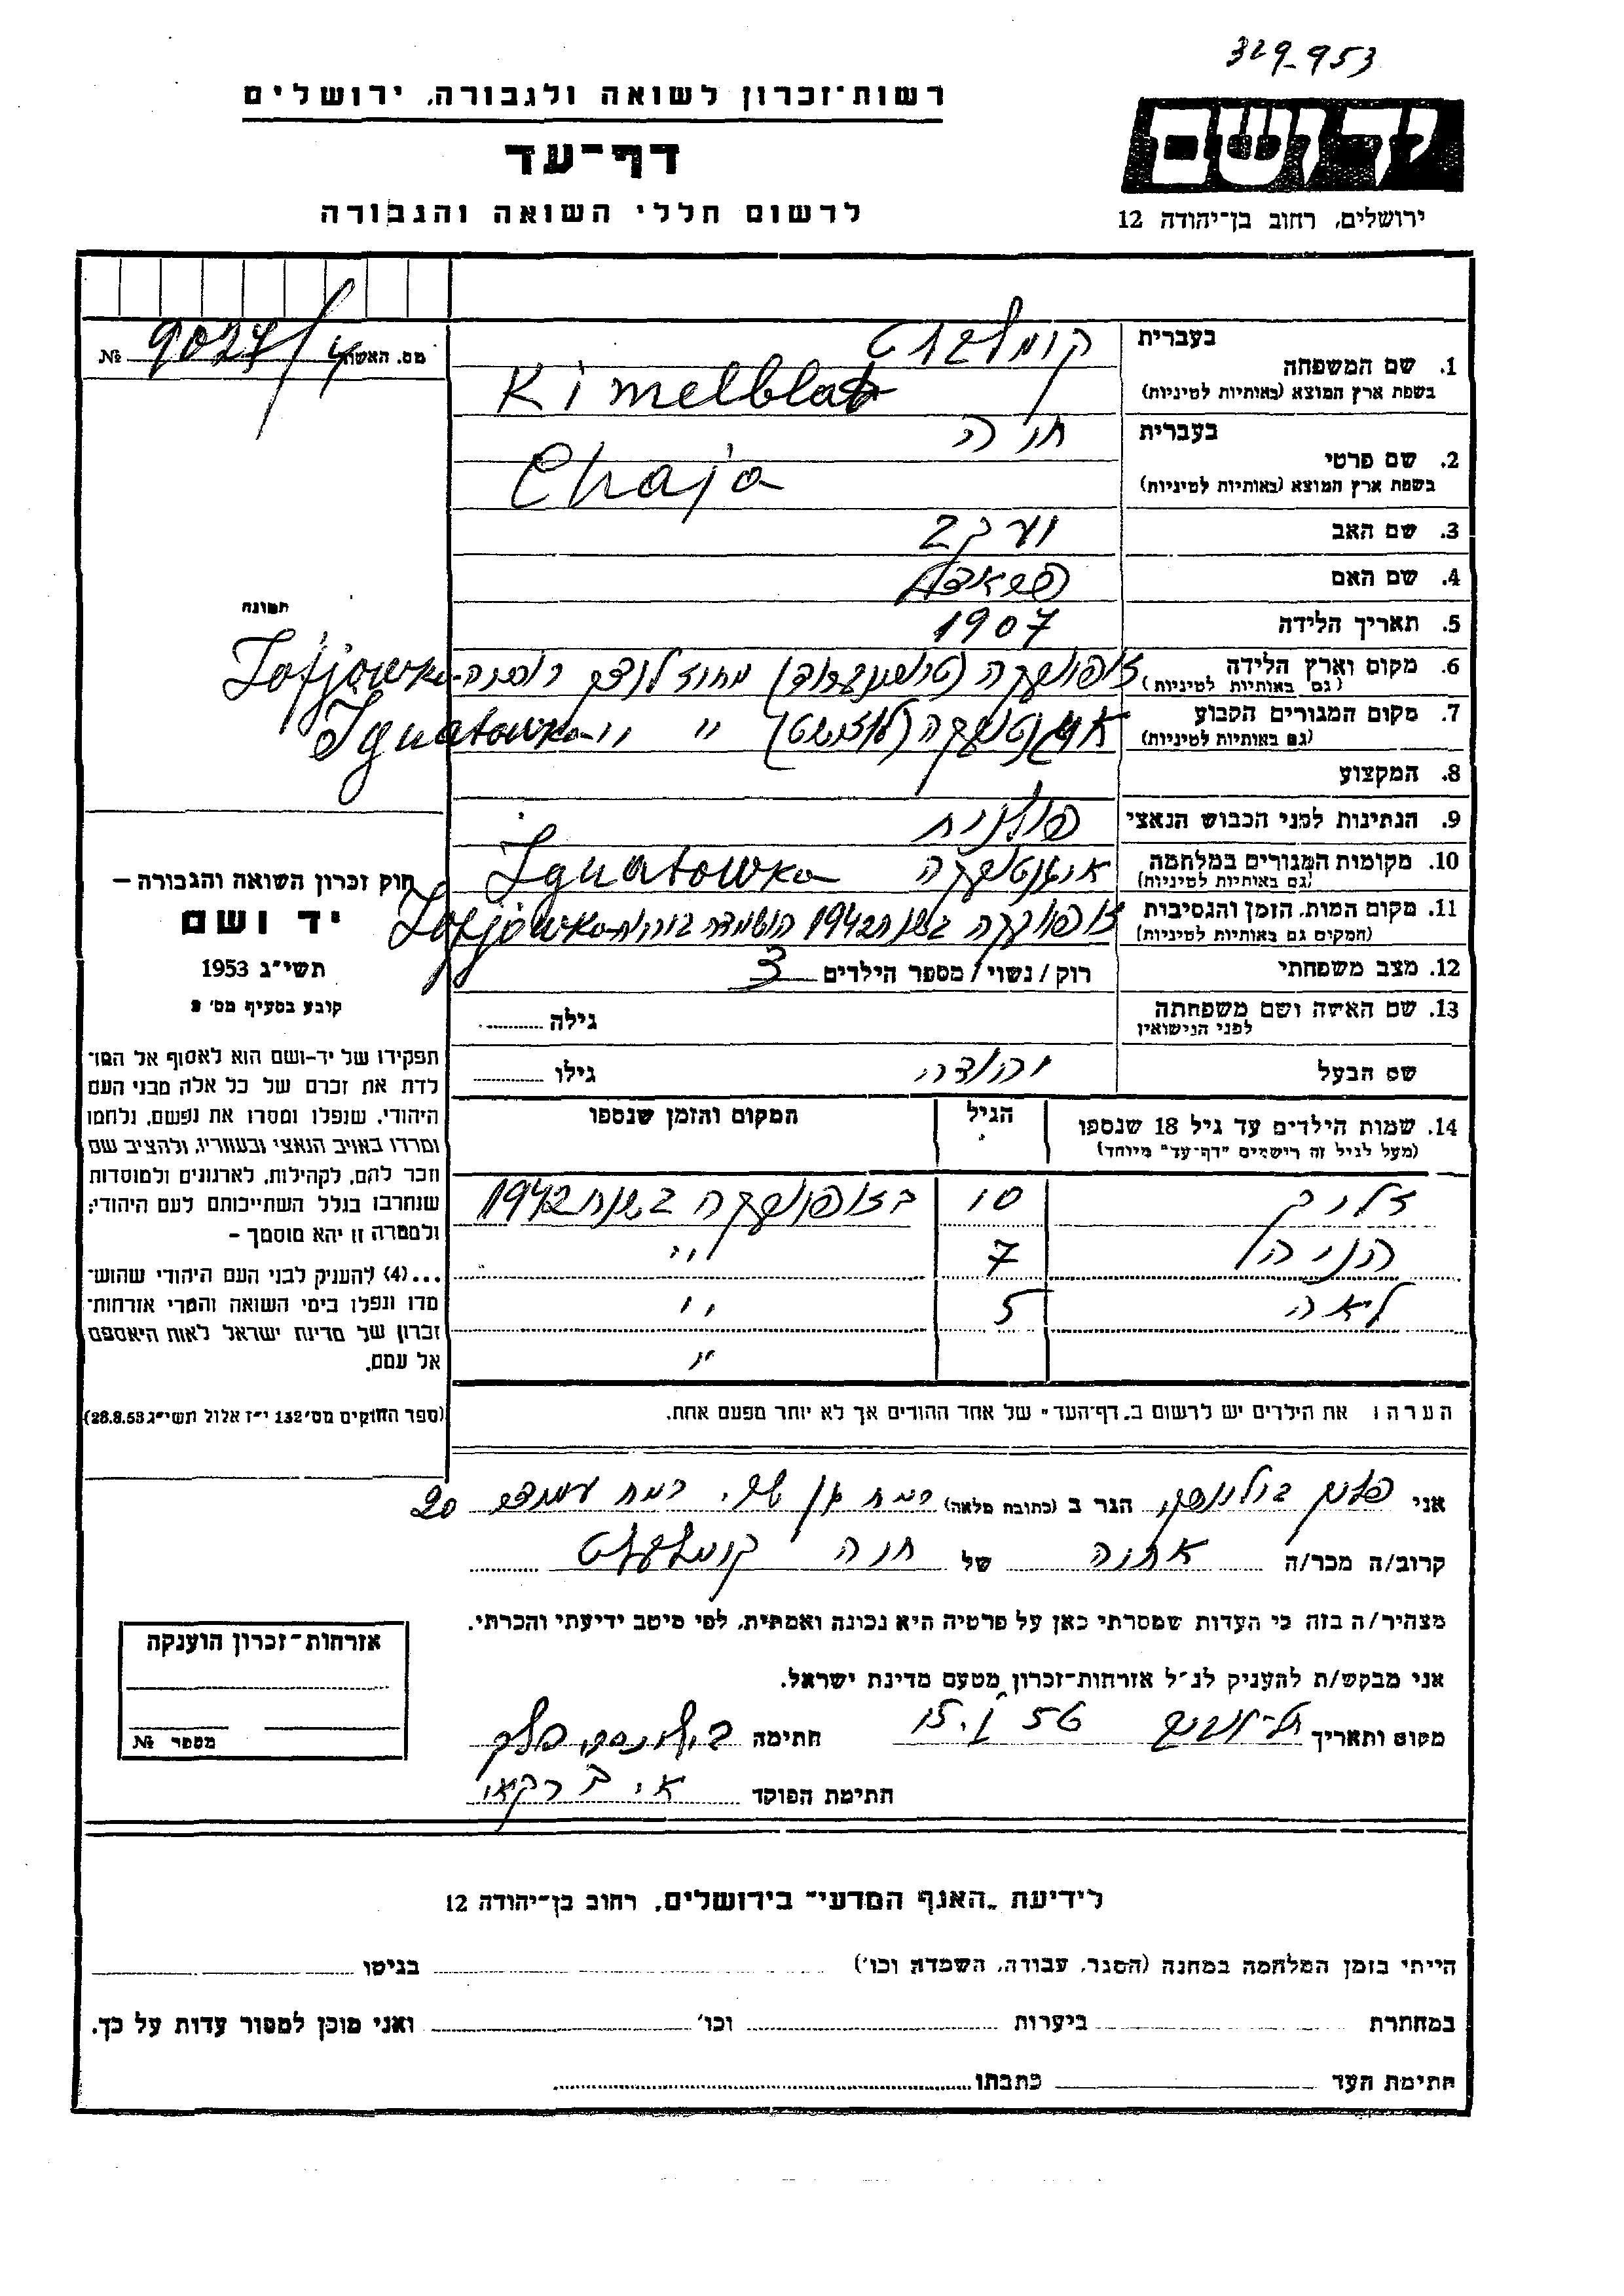 329-953
רשות-זכרון לשואה ולגבורה, ירושלים
דף-עד
לרשום חללי השואה והגבורה
יד ושם
ירושלים, רחוב בן-יהודה 12
מס. האשה № 9027/4
בעברית
1. שם המשפחה קימלבלט
בשפת ארץ המוצא (באותיות לטיניות) Kimelblat
בעברית
2. שם פרטי חיה
בשפת ארץ המוצא (באותיות לטיניות) Chaja
3. שם האב יעקב
4. שם האם
5. תאריך הלידה 1907
תמונה
6. מקום וארץ הלידה זופיובקה מחוז לוצק Zofjowka
(גם באותיות לטיניות)
7. מקום המגורים הקבוע איגנטובקה " " Ignatowka
(גם באותיות לטיניות)
8. המקצוע
9. הנתינות לפני הכבוש הנאצי פולנית
10. מקומות המגורים במלחמה איגנטובקה Ignatowka
(גם באותיות לטיניות)
11. מקום המות, הזמן והנסיבות זופיובקה בשנת 1942 Zofjowka
(המקום גם באותיות לטיניות)
12. מצב משפחתי רוק / נשוי / מספר הילדים 3
13. שם האשה ושם משפחתה גילה
לפני הנישואין
שם הבעל יהודה גילו
14. שמות הילדים עד גיל 18 שנספו הגיל המקום והזמן שנספו
(מעל לגיל זה רישמים "דף-עד" מיוחד)
זליג 10 בזופיובקה בשנת 1942
הניה 7 "
ליאה 5 "
"
הערה: את הילדים יש לרשום ב"דף-העד" של אחד ההורים אך לא יותר מפעם אחת.
חוק זכרון השואה והגבורה –
יד ושם
תשי"ג 1953
קובע בסעיף מס' 2
תפקידו של יד-ושם הוא לאסוף אל המו־
לדת את זכרם של כל אלה מבני העם
היהודי, שנפלו ומסרו את נפשם, נלחמו
ומרדו באויב הנאצי ובעוזריו, ולהציב שם
וזכר להם, לקהילות, לארגונים ולמוסדות
שנחרבו בגלל השתייכותם לעם היהודי;
ולמטרה זו יהא מוסמך –
...(4) להעניק לבני העם היהודי שהוש־
מדו ונפלו בימי השואה והמרי אזרחות־
זכרון של מדינת ישראל לאות היאספם
אל עמם.
(ספר החוקים מס' 132 י"ז אלול תשי"ג 28.8.53)
אני הגר ב (כתובת מלאה) רמת גן 20
קרוב/ה מכר/ה אחיה של חיה קימלבלט
מצהיר/ה בזה כי העדות שמסרתי כאן על פרטיה היא נכונה ואמתית, לפי מיטב ידיעתי והכרתי.
אני מבקש/ת להעניק לנ"ל אזרחות-זכרון מטעם מדינת ישראל.
מקום ותאריך תל-אביב 15.I 56 חתימה
חתימת הפוקד
אזרחות-זכרון הוענקה
מספר №
לידיעת "האגף המדעי" בירושלים, רחוב בן-יהודה 12
הייתי בזמן המלחמה במחנה (הסגר, עבודה, השמדה וכו') בגיטו
במחתרת ביערות וכו' ואני מוכן למסור עדות על כך.
חתימת העד כתבתו